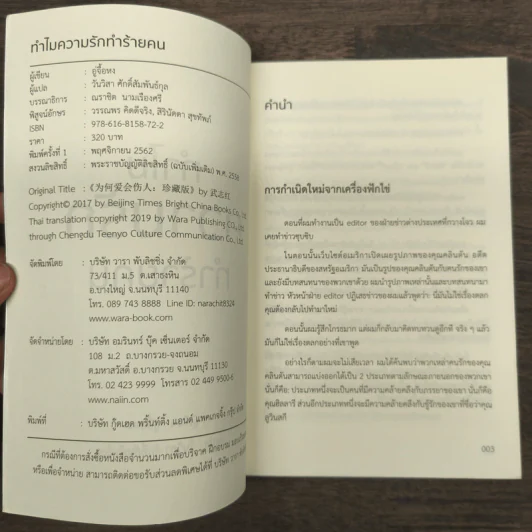 ทำไมความรักทำร้ายคน
ผู้เขียน : อู่จื้อหง
ผู้แปล : วันวิสา ศักดิ์สัมพันธ์กุล
บรรณาธิการ : ณราชิต นามเรืองศรี
พิสูจน์อักษร : วรรณพร คิดดีจริง, สิรินัดดา สุขทัพภ์
ISBN : 978-616-8158-72-2
ราคา : 320 บาท
พิมพ์ครั้งที่ 1 : พฤศจิกายน 2562
สงวนลิขสิทธิ์ : พระราชบัญญัติลิขสิทธิ์ (ฉบับเพิ่มเติม) พ.ศ. 2558
Original Title :《为何爱会伤人：珍藏版》by 武志红
Copyright © 2017 by Beijing Times Bright China Books Co., Ltd
Thai translation copyright 2019 by Wara Publishing CO., Ltd.
through Chengdu Teenyo Culture Communication Co., Ltd.
จัดพิมพ์โดย : บริษัท วารา พับลิชชิ่ง จำกัด
73/411 ม.5 ต.เสาธงหิน
อ.บางใหญ่ จ.นนทบุรี 11140
โทร. 089 743 8888 Line ID: narachit8324
www.wara-book.com
จัดจำหน่ายโดย : บริษัท อมรินทร์ บุ๊ค เซ็นเตอร์ จำกัด
108 ม.2 ถ.บางกรวย-จงถนอม
ต.มหาสวัสดิ์ อ.บางกรวย จ.นนทบุรี 11130
โทร. 02 423 9999 โทรสาร 02 449 9500-6
www.naiin.com
พิมพ์ที่ : บริษัท กู๊ดเฮด พริ้นท์ติ้ง แอนด์ แพคเกจจิ้ง กรุ๊ป จำกัด
กรณีที่ต้องการสั่งซื้อหนังสือจำนวนมากเพื่อบริจาค ฝึกอบรม
หรือเพื่อจำหน่าย สามารถติดต่อขอรับส่วนลดพิเศษได้ที่ บริษัท วารา
คำนำ
การกำเนิดใหม่จากเครื่องฟักไข่
ตอนที่ผมทำงานเป็น editor ของฝ่ายข่าวต่างประเทศที่กวางโจว ผม
เคยทำข่าวซุบซิบ
ในตอนนั้นเว็บไซต์อเมริกาเปิดเผยรูปภาพของคุณคลินตัน อดีต
ประธานาธิบดีของสหรัฐอเมริกา มันเป็นรูปของคุณคลินตันกับคนรักของเขา
และยังมีบทสนทนาของพวกเขาด้วย ผมนำรูปภาพเหล่านั้นและบทสนทนามา
ทำข่าว หัวหน้าฝ่าย editor ปฏิเสธข่าวของผมแล้วพูดว่า: นี่มันไม่ใช่เรื่องตลก
คุณต้องกลับไปทำมาใหม่
ตอนนั้นผมรู้สึกโกรธมาก แต่ผมก็กลับมาคิดทบทวนดูอีกที จริง ๆ แล้ว
มันก็ไม่ใช่เรื่องตลกอย่างที่เขาพูด
อย่างไรก็ตามผมจะไม่เสียเวลา ผมได้ค้นพบว่าพวกเหล่าคนรักของคุณ
คลินตันสามารถแบ่งออกได้เป็น 2 ประเภทตามลักษณะภายนอกของพวกเขา
นั่นก็คือ: ประเภทหนึ่งจะเป็นคนที่มีความคล้ายคลึงกับภรรยาของเขา นั่นก็คือ
คุณฮิลลารี ส่วนอีกประเภทหนึ่งจะมีความคล้ายคลึงกับชู้รักของเขาที่ชื่อว่าคุณ
ลูวินสกี
003